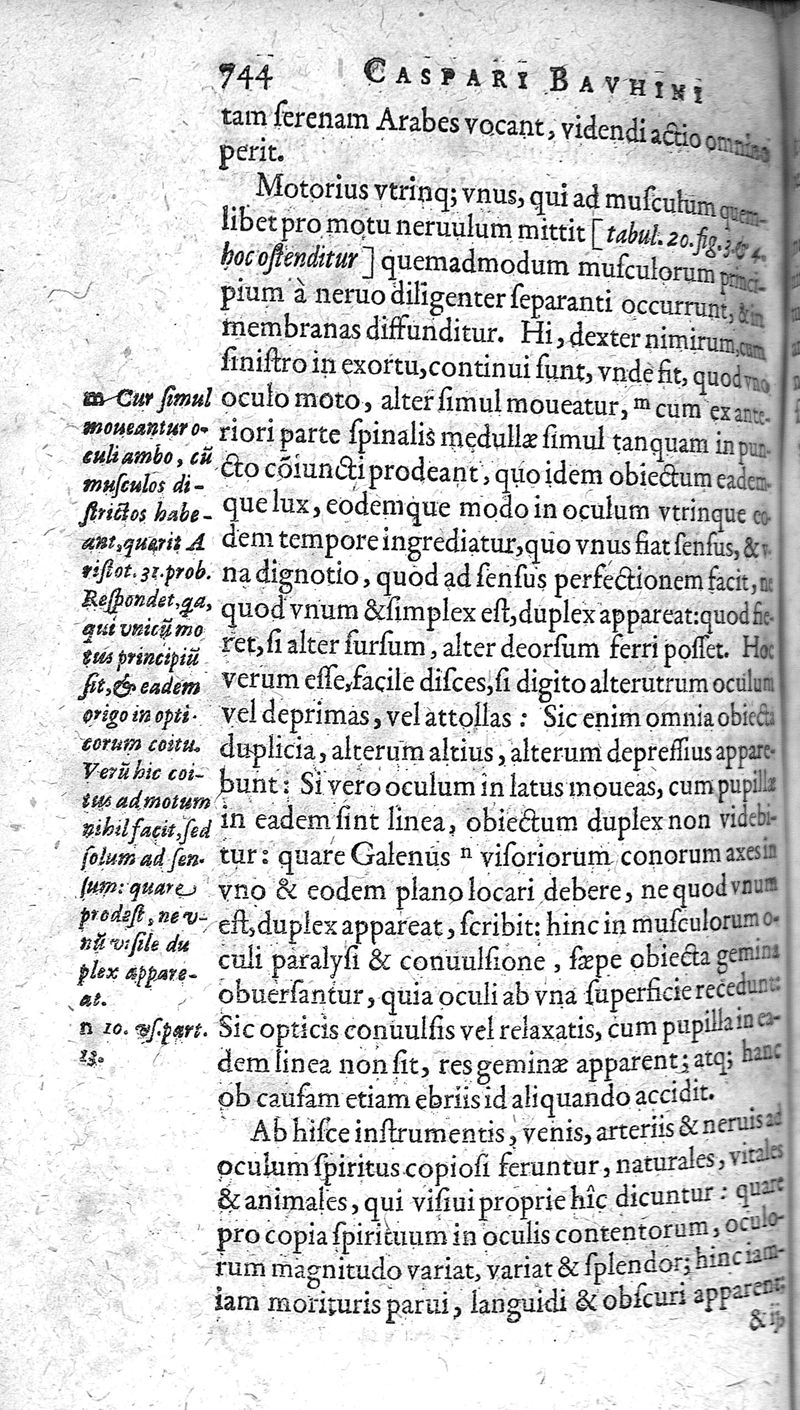 744 CASPARI BAVHINI
tam ſerenam Arabes vocant, videndi actio omnino
perit.
Motorius vtrinq; vnus, qui ad muſculum quem-
libet pro motu neruulum mittit [tabul. 20. fig. 3. & 4.
hoc oſtenditur] quemadmodum muſculorum princi-
pium à neruo diligenter ſeparanti occurrunt, & in
membranas diffunditur. Hi, dexter nimirum, cum
ſiniſtro in exortu, continui ſunt, vnde fit, quod vno
oculo moto, alter ſimul moueatur, m cum ex ante-
riori parte ſpinalis medullæ ſimul tanquam in pun-
cto cõiuncti prodeant, quo idem obiectum eadem-
que lux, eodemque modo in oculum vtrinque eo-
dem tempore ingrediatur, quo vnus fiat ſenſus, & v-
na dignotio, quod ad ſenſus perfectionem facit, ne
quod vnum & ſimplex eſt, duplex appareat: quod fie-
ret, ſi alter ſurſum, alter deorſum ferri poſſet. Hoc
verum eſſe, facile diſces, ſi digito alterutrum oculum
vel deprimas, vel attollas: Sic enim omnia obiecta
duplicia, alterum altius, alterum depreſſius appare-
bunt: Si vero oculum in latus moueas, cum pupillæ
in eadem ſint linea, obiectum duplex non videbi-
tur: quare Galenus n viſoriorum conorum axes in
vno & eodem plano locari debere, ne quod vnum
eſt, duplex appareat, ſcribit: hinc in muſculorum o-
culi paralyſi & conuulſione, ſæpe obiecta gemina
obuerſantur, quia oculi ab vna ſuperficie recedunt:
Sic opticis conuulſis vel relaxatis, cum pupilla in ea-
dem linea non ſit, res geminæ apparent; atq; hanc
ob cauſam etiam ebriis id aliquando accidit.
Ab hiſce inſtrumentis, venis, arteriis & neruis ad
oculum ſpiritus copioſi feruntur, naturales, vitales
& animales, qui viſiui proprie hîc dicuntur: quare
pro copia ſpirituum in oculis contentorum, oculo-
rum magnitudo variat, variat & ſplendor; hinc iam-
iam morituris parui, languidi & obſcuri apparent:
& ip
m Cur ſimul
moueantur o-
culi ambo, cũ
muſculos di-
ſtrictos habe-
ant, quærit A
riſtot. 31. prob.
Reſpondet, qa,
qui vnicũ mo
tus principiũ
ſit, & eadem
origo in opti-
corum coitu.
Verũ hic coi-
tus ad motum
nihil facit, ſed
ſolum ad ſen-
ſum: quare
prodeſt, ne v-
nũ viſile du
plex appare-
at.
n 10. uſ. part.
13.